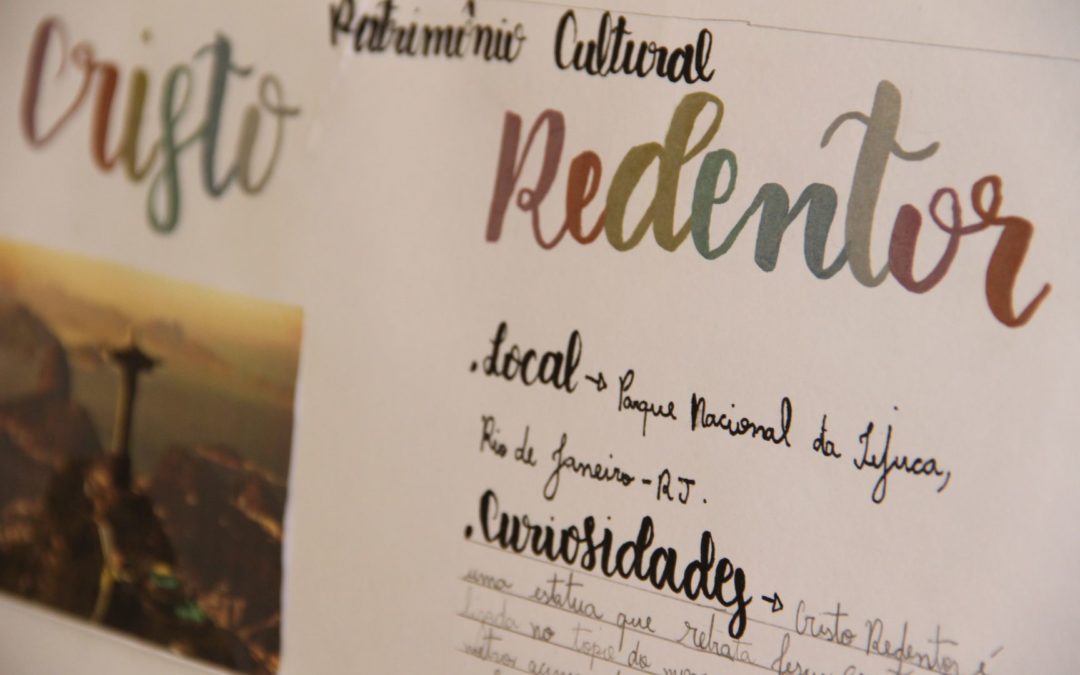 Patrimônio Cultural
Cristo Redentor
.Local → Parque Nacional da Tijuca,
Rio de Janeiro - RJ.
.Curiosidades → Cristo Redentor é
uma estatua que retrata Jesus
no topo do
metros